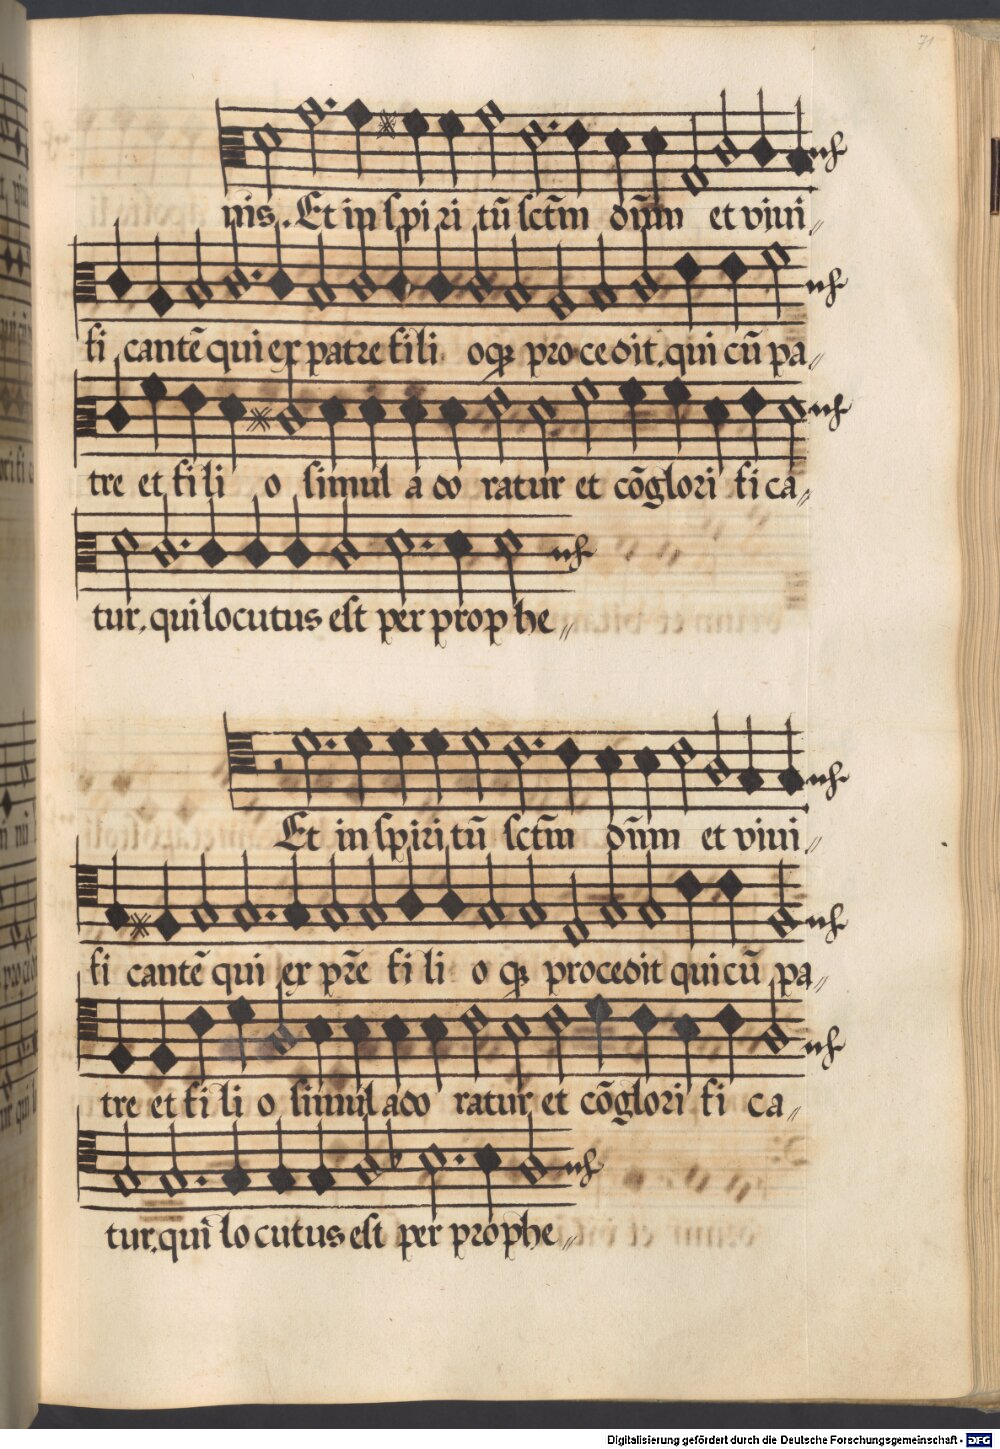 71
nis. Et in spi ri tũ sctm̃ dñm et vivi〃
fi cantẽ qui ex patre fi li oqꝫ pro ce dit. qui cũ pa〃
tre et fi li o simul a do ratur et cõglori fi ca〃
tur. qui locutus est per prophe〃
Et in spiri tũ sctm̃ dñm et vivi〃
fi cantẽ qui ex pr̃e fi li o qꝫ procedit qui cũ pa〃
tre et fi li o simul ado ratur et cõglori fi ca〃
tur. qui lo cutus est per prophe〃
Digitalisierung gefördert durch die Deutsche Forschungsgemeinschaft - DFG